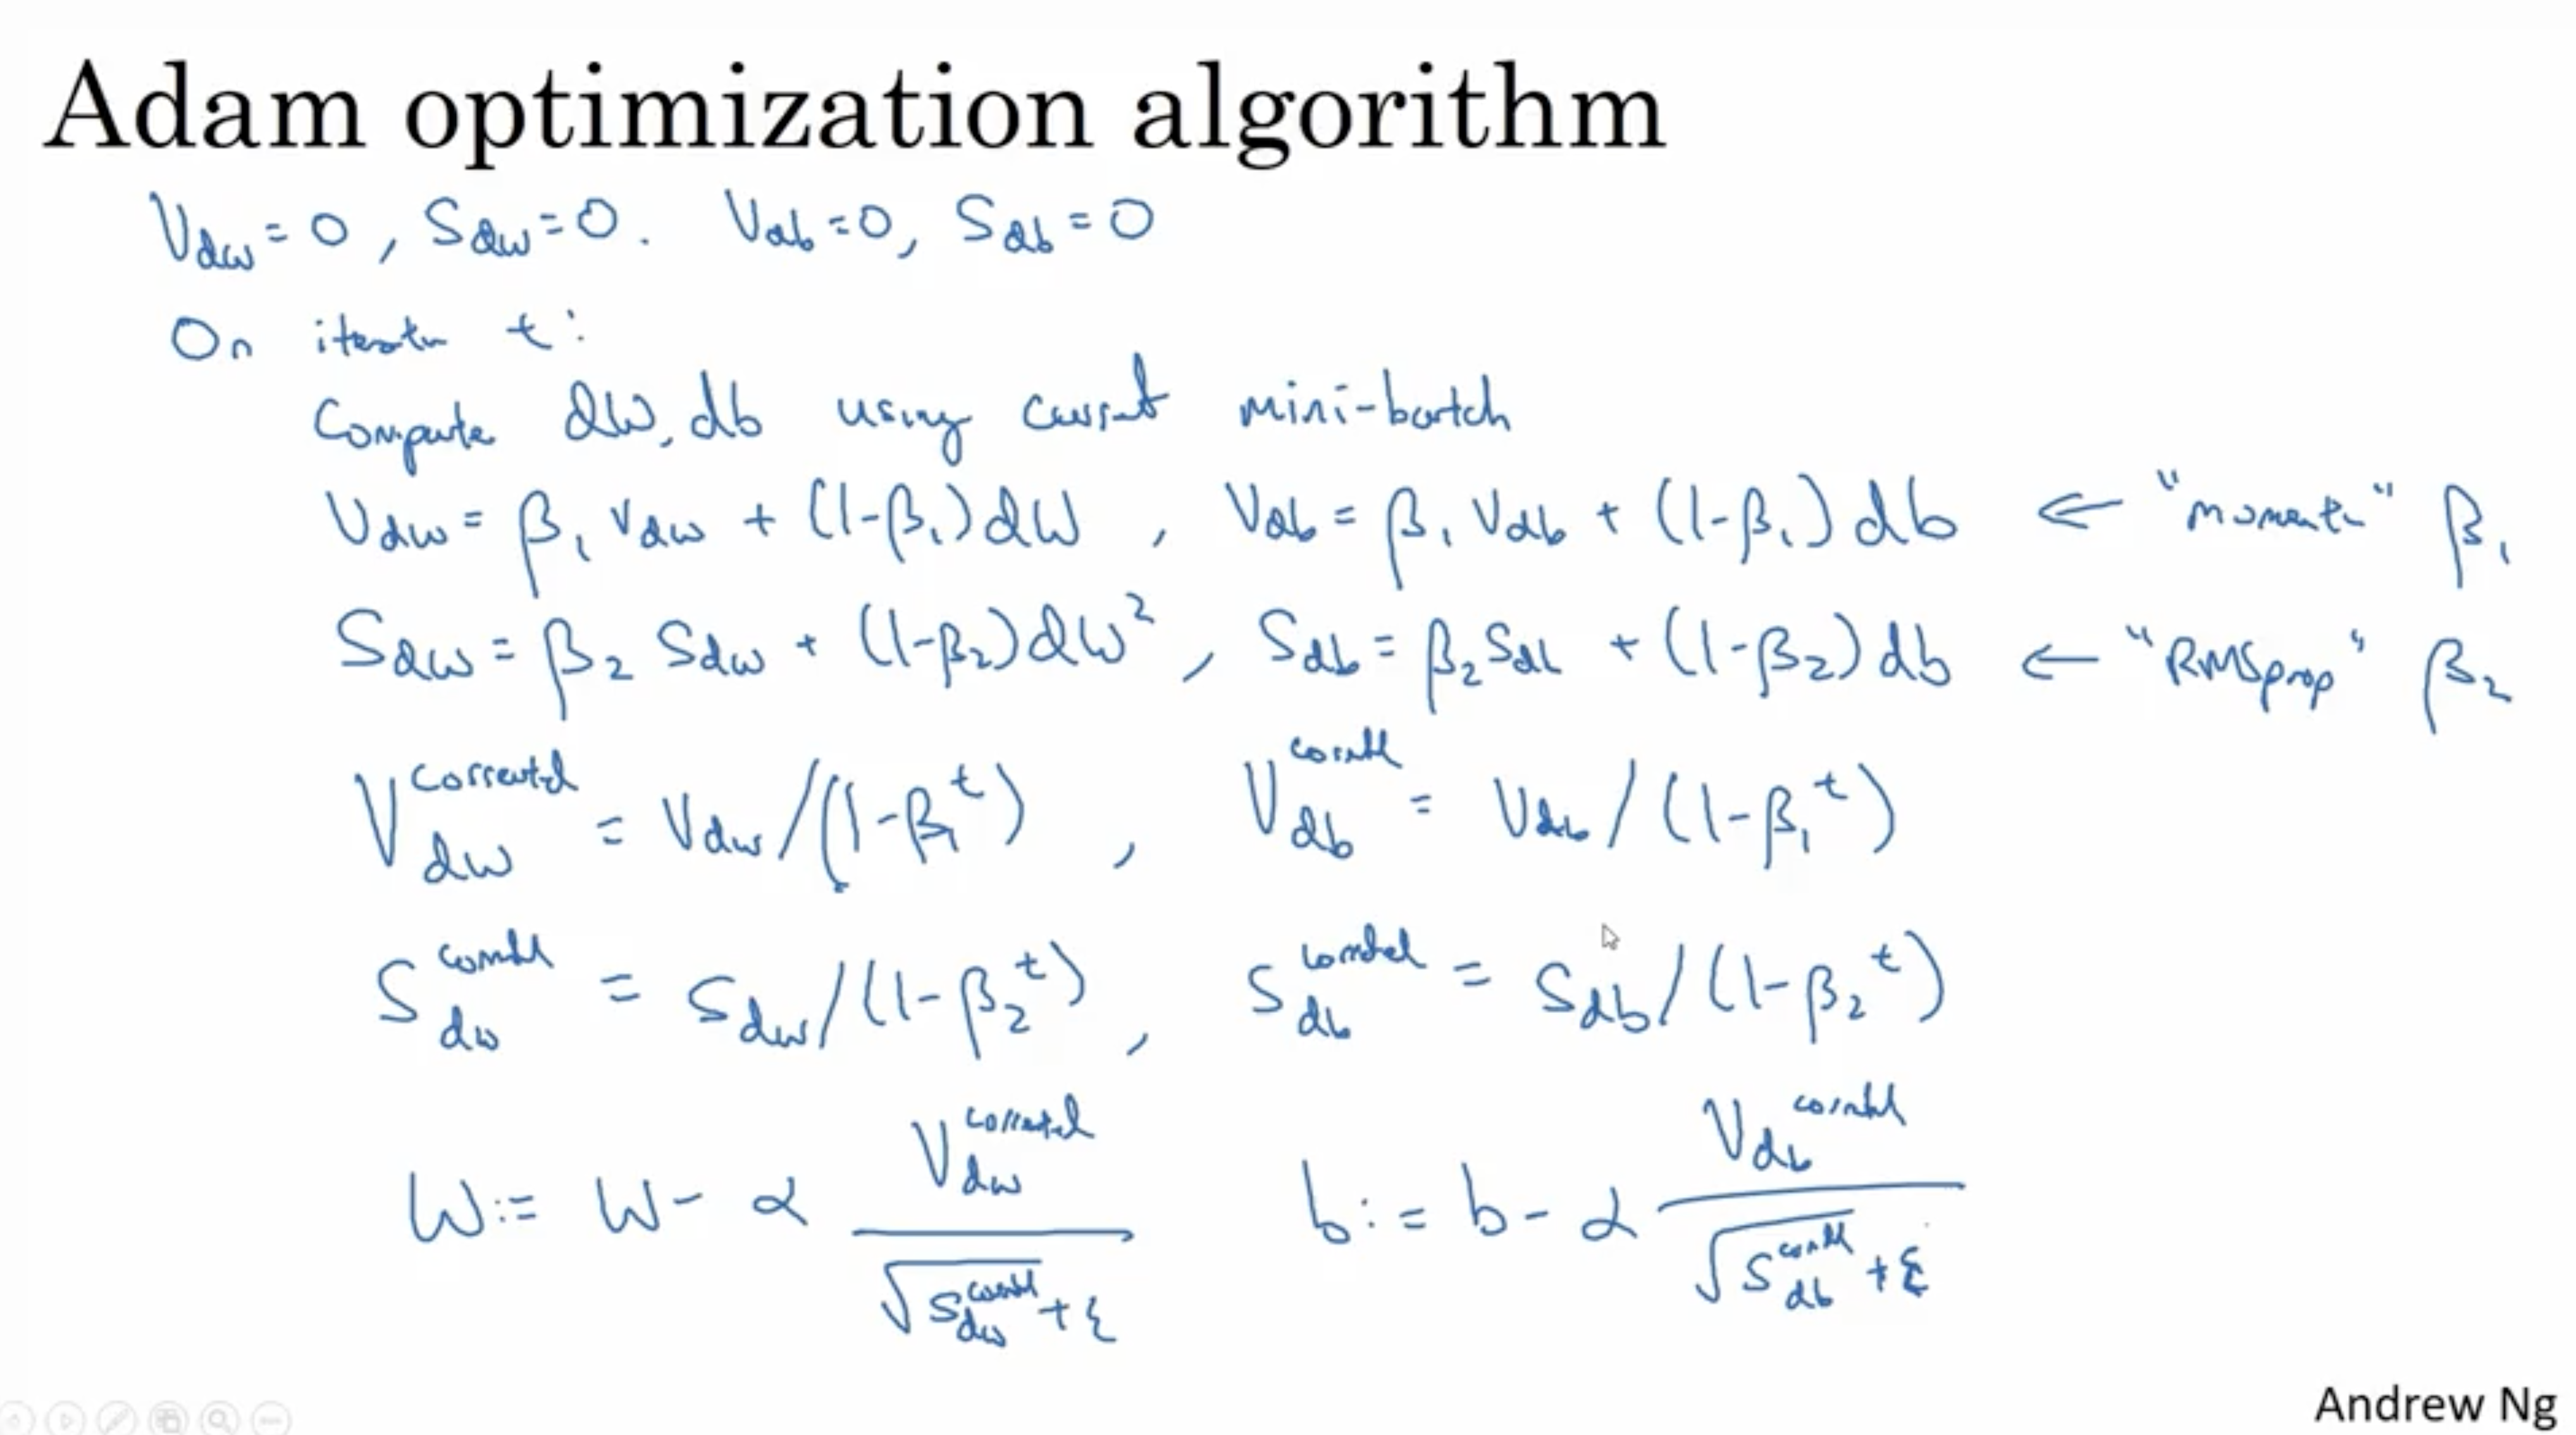 Adam optimization algorithm
V_dw = 0, S_dw = 0. V_db = 0, S_db = 0
On iteratn t:
Compute dW, db using current mini-batch
V_dw = β₁ V_dw + (1-β₁) dW , V_db = β₁ V_db + (1-β₁) db ← "momentum" β₁
S_dw = β₂ S_dw + (1-β₂) dW² , S_db = β₂ S_db + (1-β₂) db ← "RMSprop" β₂
V_dw^corrected = V_dw/(1-β₁^t) , V_db^corrected = V_db/(1-β₁^t)
S_dw^corrected = S_dw/(1-β₂^t) , S_db^corrected = S_db/(1-β₂^t)
W := W - α V_dw^corrected / (√S_dw^corrected + ε) b := b - α V_db^corrected / (√S_db^corrected + ε)
Andrew Ng